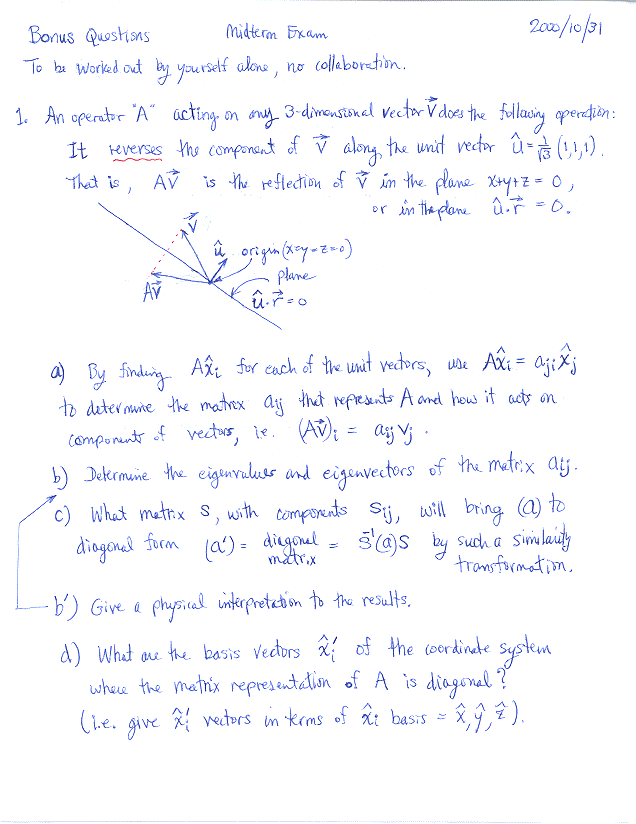 Bonus Questions Midterm Exam 2000/10/31
To be worked out by yourself alone, no collaboration.
1. An operator "A" acting on any 3-dimensional vector V⃗ does the following operation:
It reverses the component of V⃗ along the unit vector û = 1/√3 (1,1,1).
That is, AV⃗ is the reflection of V⃗ in the plane x+y+z = 0,
or in the plane û·r⃗ = 0.
V⃗
û origin (x=y=z=0)
plane
AV⃗
û·r⃗ = 0
a) By finding Ax̂i for each of the unit vectors, use Ax̂i = aji x̂j
to determine the matrix aij that represents A and how it acts on
components of vectors, i.e. (AV⃗)i = aij vj.
b) Determine the eigenvalues and eigenvectors of the matrix aij.
c) What matrix S, with components Sij, will bring (a) to
diagonal form (a') = diagonal matrix = S⁻¹(a)S by such a similarity
transformation.
b') Give a physical interpretation to the results.
d) What are the basis vectors x̂i' of the coordinate system
where the matrix representation of A is diagonal?
(i.e. give x̂i' vectors in terms of x̂i basis = x̂, ŷ, ẑ).